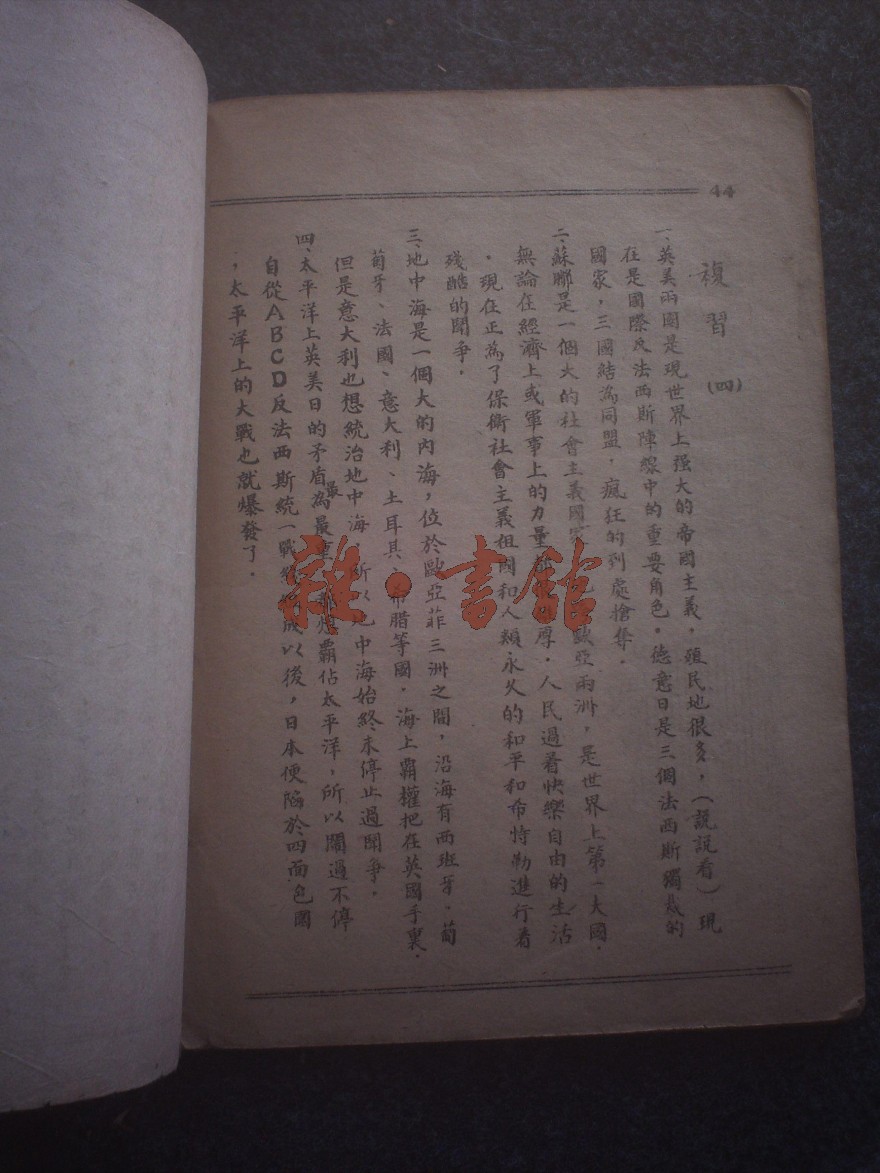 44
複習 (四)
一、英美兩國是現世界上强大的帝國主義，殖民地很多，（說說看）現
在是國際反法西斯陣線中的重要角色。德意日是三個法西斯獨裁的
國家，三國結為同盟，瘋狂的到處搶奪．
二、蘇聯是一個大的社會主義國家 歐亞兩洲，是世界上第一大國．
無論在經濟上或軍事上的力量 厚．人民過着快樂自由的生活
．現在正為了保衛社會主義祖國和人類永久的和平和希特勒進行着
殘酷的鬥爭．
三、地中海是一個大的內海，位於歐亞菲三洲之間，沿海有西班牙、葡
萄牙、法國、意大利、土耳其、希腊等國，海上霸權把在英國手裏．
但是意大利也想統治地中海，所以地中海始終未停止過鬥爭．
四、太平洋上英美日的矛盾為最重 霸佔太平洋，所以鬧過不停
最
自從ABCD反法西斯統一戰線 成以後，日本便陷於四面包圍
，太平洋上的大戰也就爆發了．
雜·書館